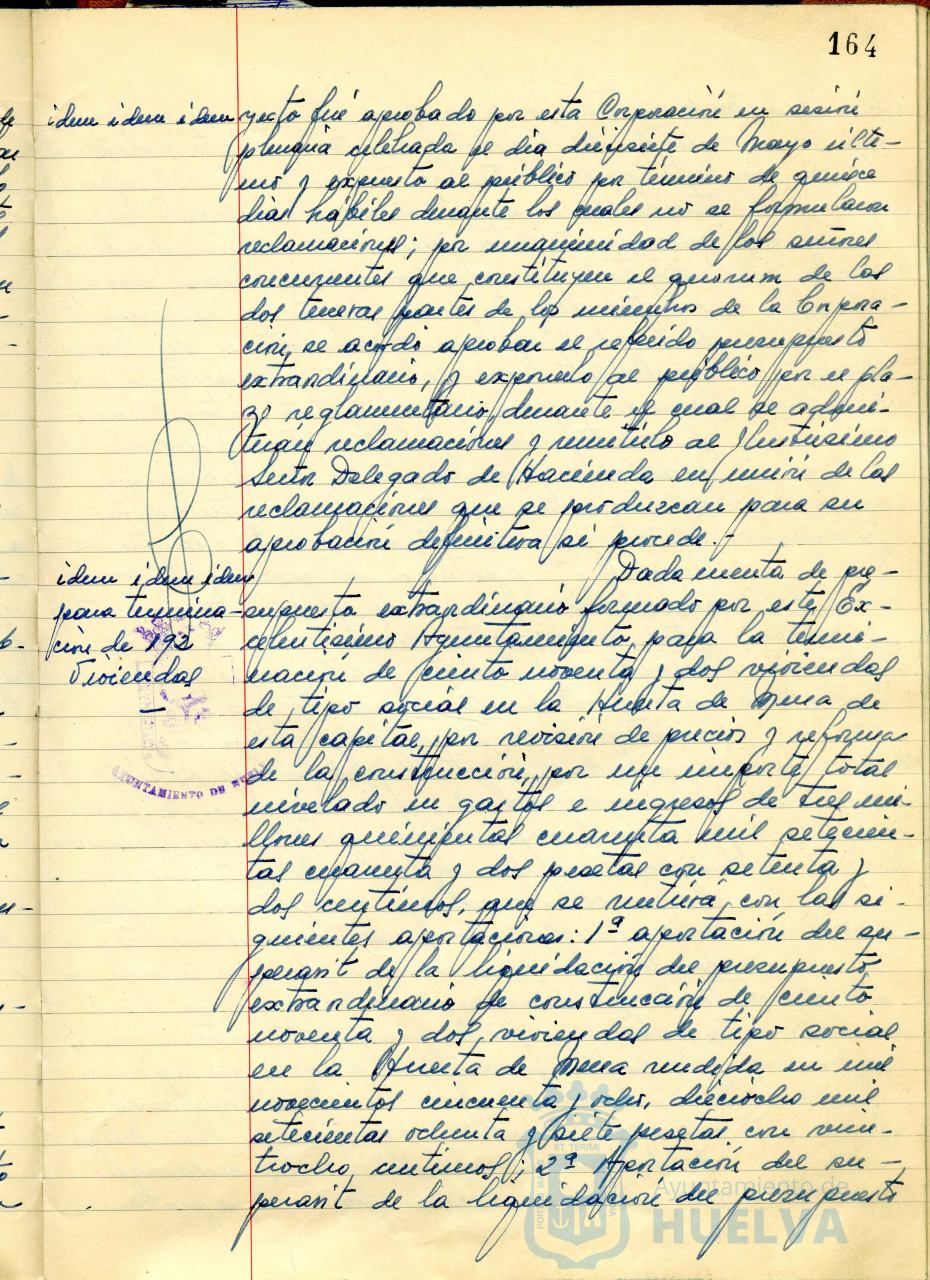 164
idem idem idem
yecto fué aprobado por esta Corporación en sesión
plenaria celebrada el dia diecisiete de Mayo últi-
mo y expuesto al público por término de quince
dias hábiles durante los cuales no se formularon
reclamaciones; por unanimidad de los señores
concurrentes que constituyen el quorum de las
dos terceras partes de los miembros de la Corpora-
ción, se acordó aprobar el referido presupuesto
extraordinario, y exponerlo al público por el pla-
zo reglamentario, durante el cual se admi-
tirán reclamaciones y remitirlo al Ilustrisimo
Señor Delegado de Hacienda en unión de las
reclamaciones que se produzcan para su
aprobación definitiva si procede.-
idem idem idem
para termina-
ción de 192
Viviendas
Dada cuenta de pre-
supuesto extraordinario formado por este Ex-
celentisimo Ayuntamiento para la termi-
nación de ciento noventa y dos viviendas
de tipo social en la Huerta de Mena de
esta capital, por revisión de precios y reformas
de la construcción, por un importe total
nivelado en gastos e ingresos de tres mi-
llones quinientas cuarenta mil setecien-
tas cuarenta y dos pesetas con setenta y
dos centimos, que se nutrirá con las si-
guientes aportaciones: 1ª aportación del su-
peravit de la liquidación del presupuesto
extraordinario de construcción de ciento
noventa y dos viviendas de tipo social
en la Huerta de Mena rendida en mil
novecientos cincuenta y ocho, dieciocho mil
setecientas ochenta y siete pesetas con vein-
tiocho centimos; 2ª Aportación del su-
peravit de la liquidación del presupuesto
AYUNTAMIENTO DE HUELVA
Ayuntamiento de
HUELVA